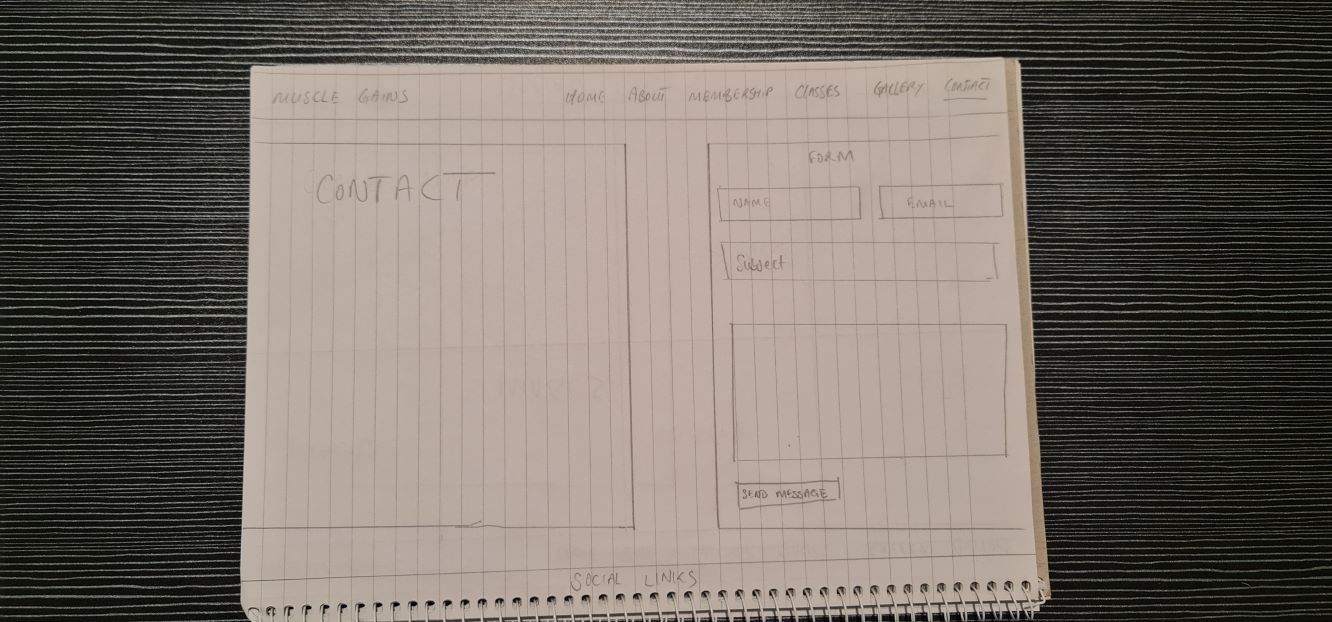 MUSCLE GAINS HOME ABOUT MEMBERSHIP CLASSES GALLERY CONTACT
CONTACT
FORM
NAME EMAIL
Subject
SEND MESSAGE
SOCIAL LINKS